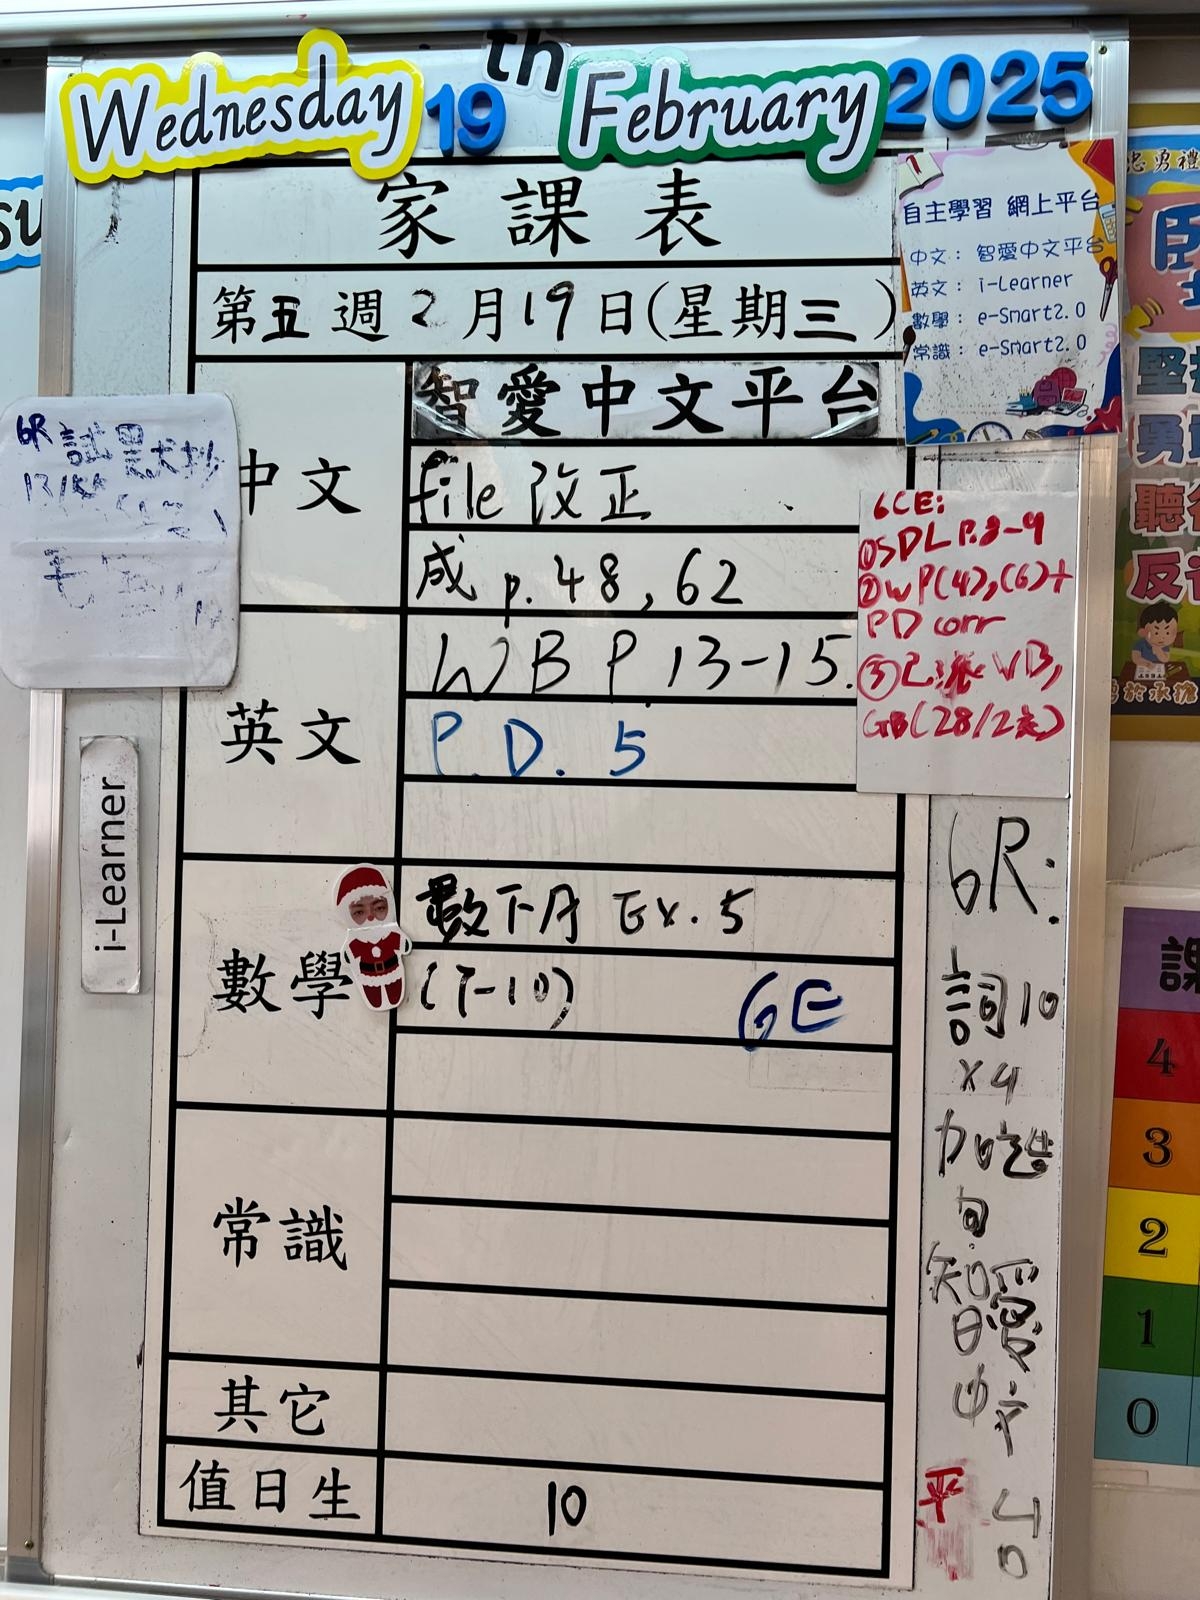 Wednesday 19th February 2025
家課表
第五週2月19日(星期三)
中文
智愛中文平台
file 改正
成 p.48,62
英文
WB P 13-15.
P.D. 5
數學
數下A Ex.5
6E
常識
其它
值日生
10
自主學習 網上平台
中文: 智愛中文平台
英文: i-Learner
數學: e-Smart2.0
常識: e-Smart2.0
6CE:
①SDL P.8-9
②WP(4),(6)+
PD corr
③已派 WB,
GB(28/2交)
6R:
詞10
x4
句
智愛
中文
平
40
6R
i-Learner
4
3
2
1
0